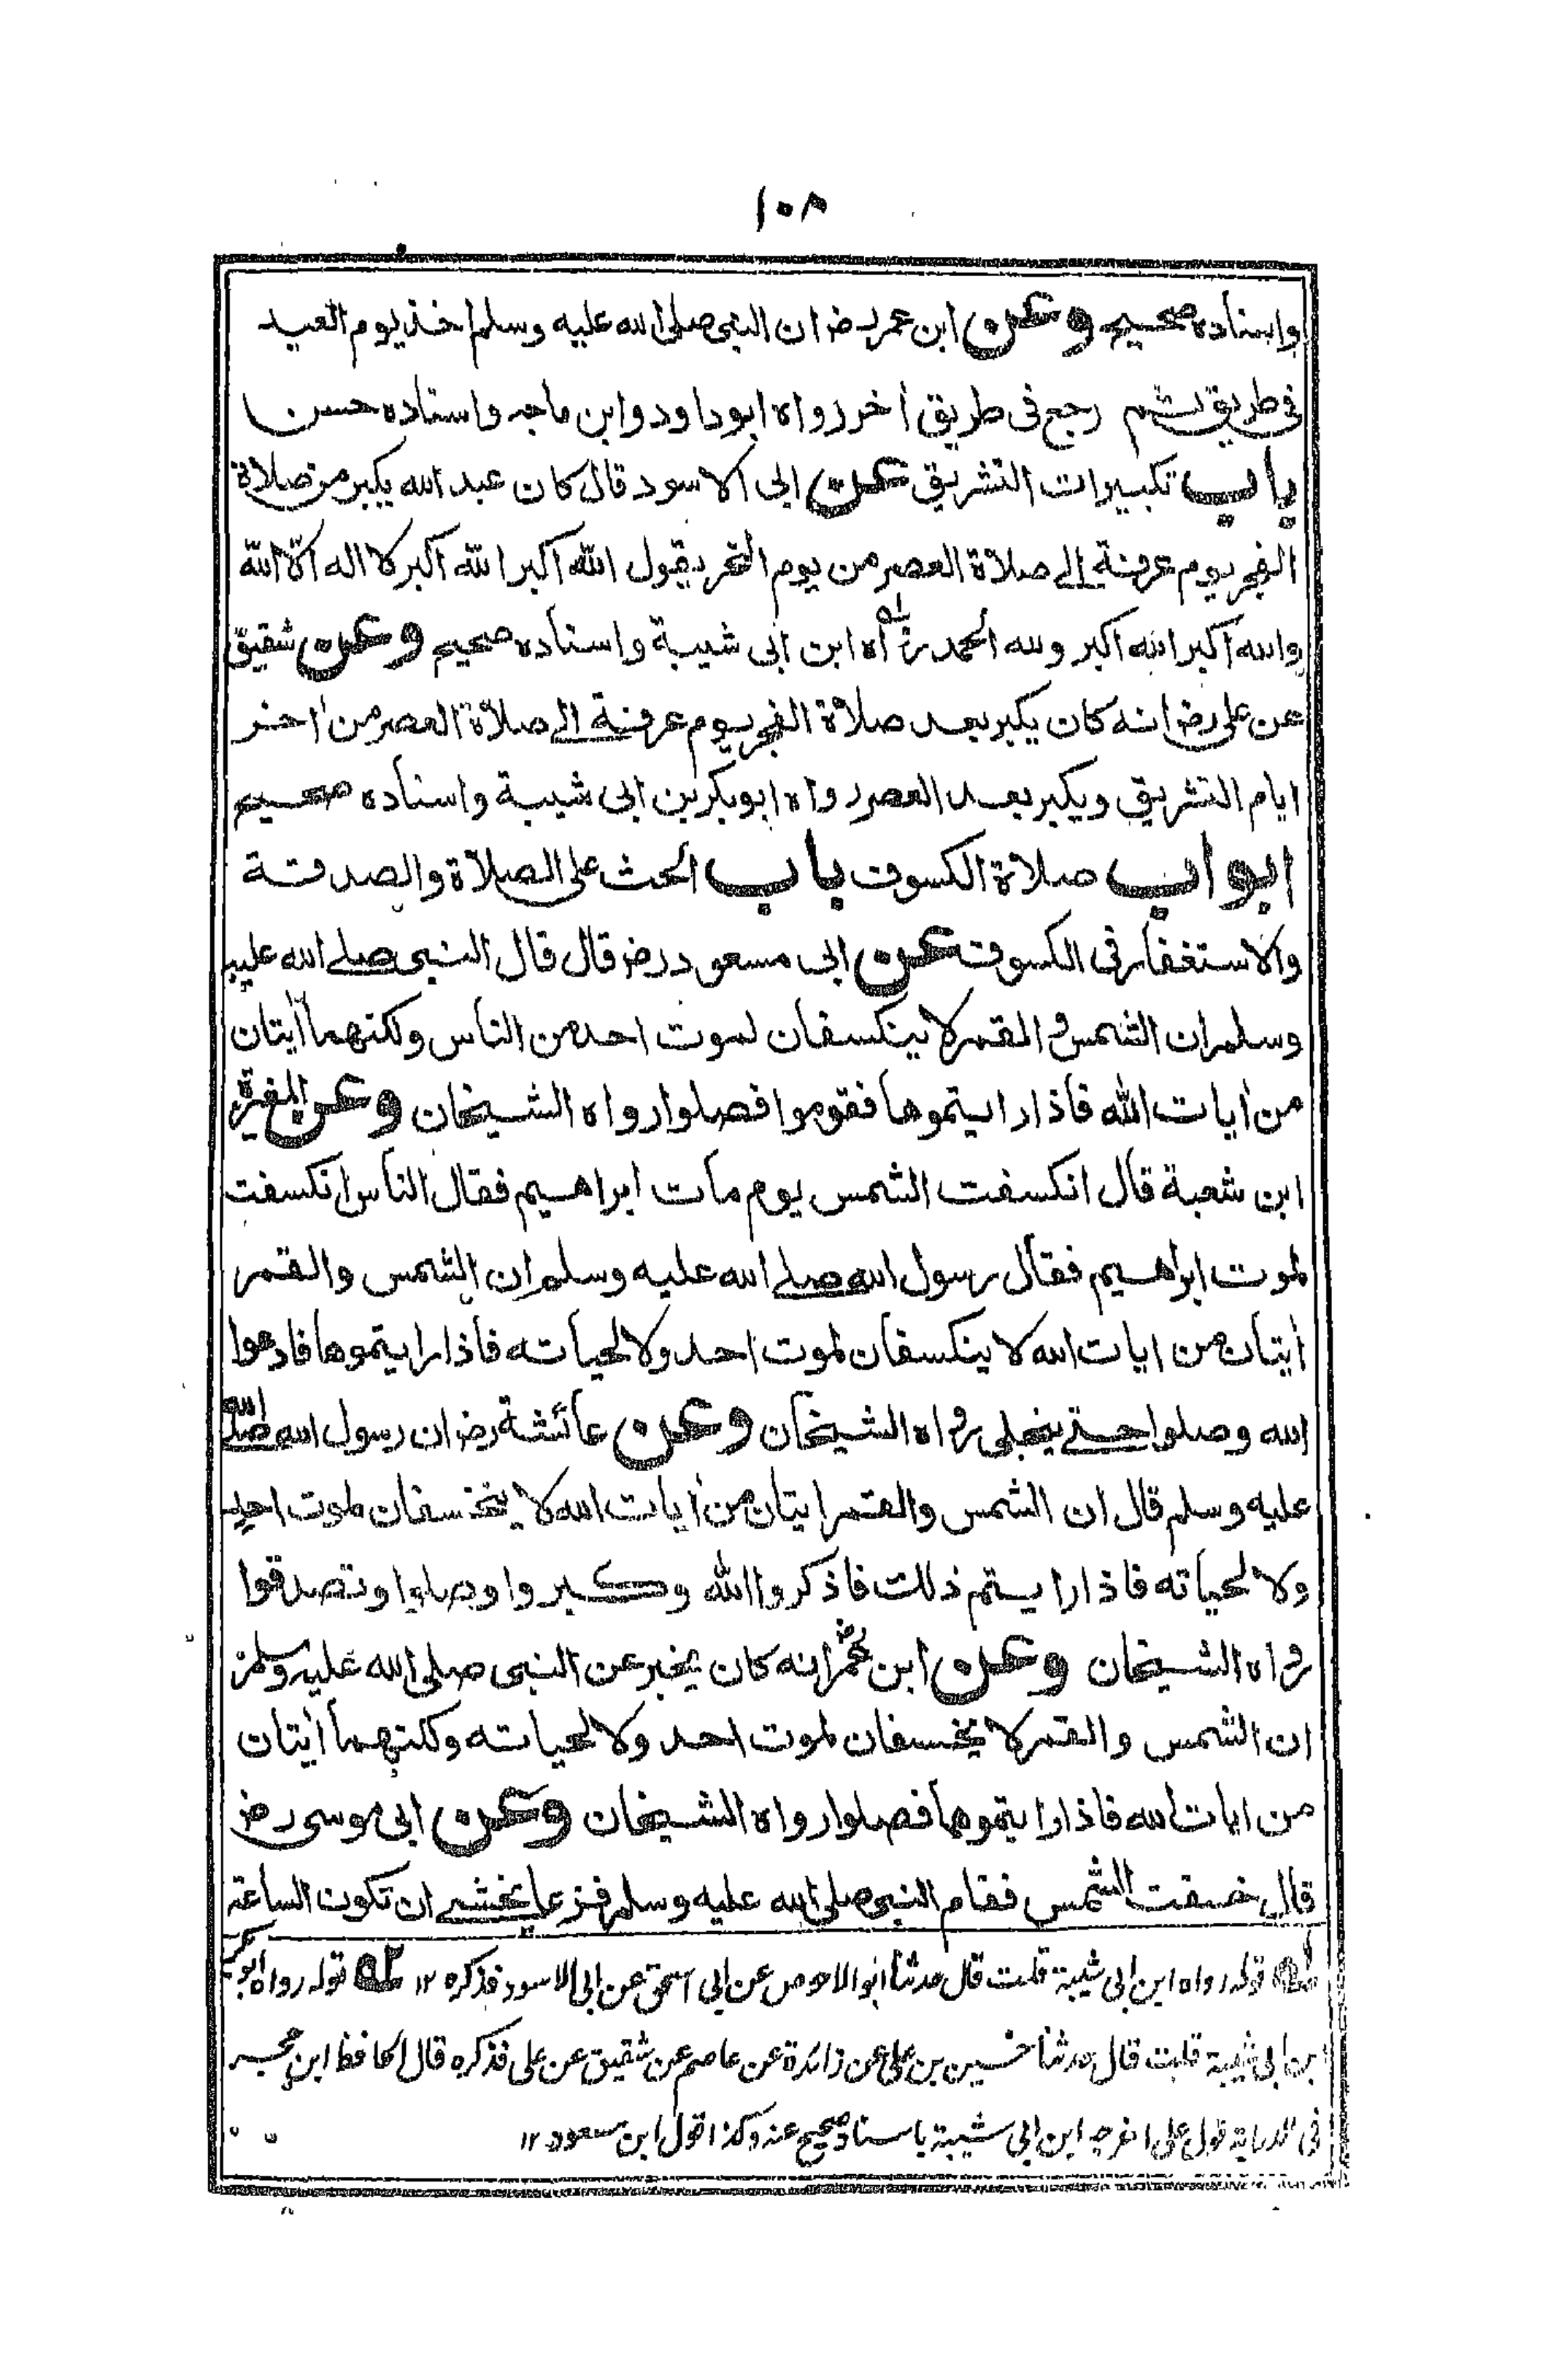 ١٠٨
واسناده صحيح وعن ابن عمر رض ان النبى صلى الله عليه وسلم اخذ يوم العيد
فى طريق ثم رجع فى طريق اخر رواه ابو داود وابن ماجه واسناده حسن
باب تكبيرات التشريق عن ابى الاسود قال كان عبد الله يكبر من صلاة
الفجر يوم عرفة الى صلاة العصر من يوم النحر يقول الله اكبر الله اكبر لا اله الا الله
والله اكبر الله اكبر ولله الحمد رواه ابن ابى شيبة واسناده صحيح وعن شقيق
عن على رض انه كان يكبر بعد صلاة الفجر يوم عرفة الى صلاة العصر من اخر
ايام التشريق ويكبر بعد العصر رواه ابو بكر بن ابى شيبة واسناده صحيح
ابواب صلاة الكسوف باب الحث على الصلاة والصدقة
والاستغفار فى الكسوف عن ابى مسعود رض قال قال النبى صلے الله عليه
وسلم ان الشمس والقمر لا ينكسفان لموت احد من الناس ولكنهما اٰيتان
من اٰيات الله فاذا رايتموها فقوموا فصلوا رواه الشيخان وعن المغيرة
ابن شعبة قال انكسفت الشمس يوم مات ابراهيم فقال الناس انكسفت
لموت ابراهيم فقال رسول الله صلے الله عليه وسلم ان الشمس والقمر
اٰيتان من ايات الله لا ينكسفان لموت احد ولا لحياته فاذا رايتموها فادعوا
الله وصلوا حتے ينجلى رواه الشيخان وعن عائشة رض ان رسول الله صلے الله
عليه وسلم قال ان الشمس والقمر ايتان من اٰيات الله لا يخسفان لموت احد
ولا لحياته فاذا رايتم ذلك فاذكروا الله وكبروا وصلوا وتصدقوا
رواه الشيخان وعن ابن عمر رض انه كان يخبر عن النبى صلى الله عليه وسلم
ان الشمس والقمر لا يخسفان لموت احد ولا لحياته ولكنهما اٰيتان
من ايات الله فاذا رايتموها فصلوا رواه الشيخان وعن ابى موسى رض
قال خسفت الشمس فقام النبى صلى الله عليه وسلم فزعا يخشے ان تكون الساعة
له قوله رواه ابن ابى شيبة قلت قال حدثنا ابو الاحوص عن ابى اسحق عن ابى الاسود فذكره ١٢ ٢ه قوله رواه ابو بكر
بن ابى شيبة قلت قال حدثنا حسين بن على عن زائدة عن عاصم عن شقيق عن على فذكره قال الحافظ ابن حجر
فى الدراية قول على اخرجه ابن ابى شيبة باسناد صحيح عنه وكذا قول ابن مسعود ١٢